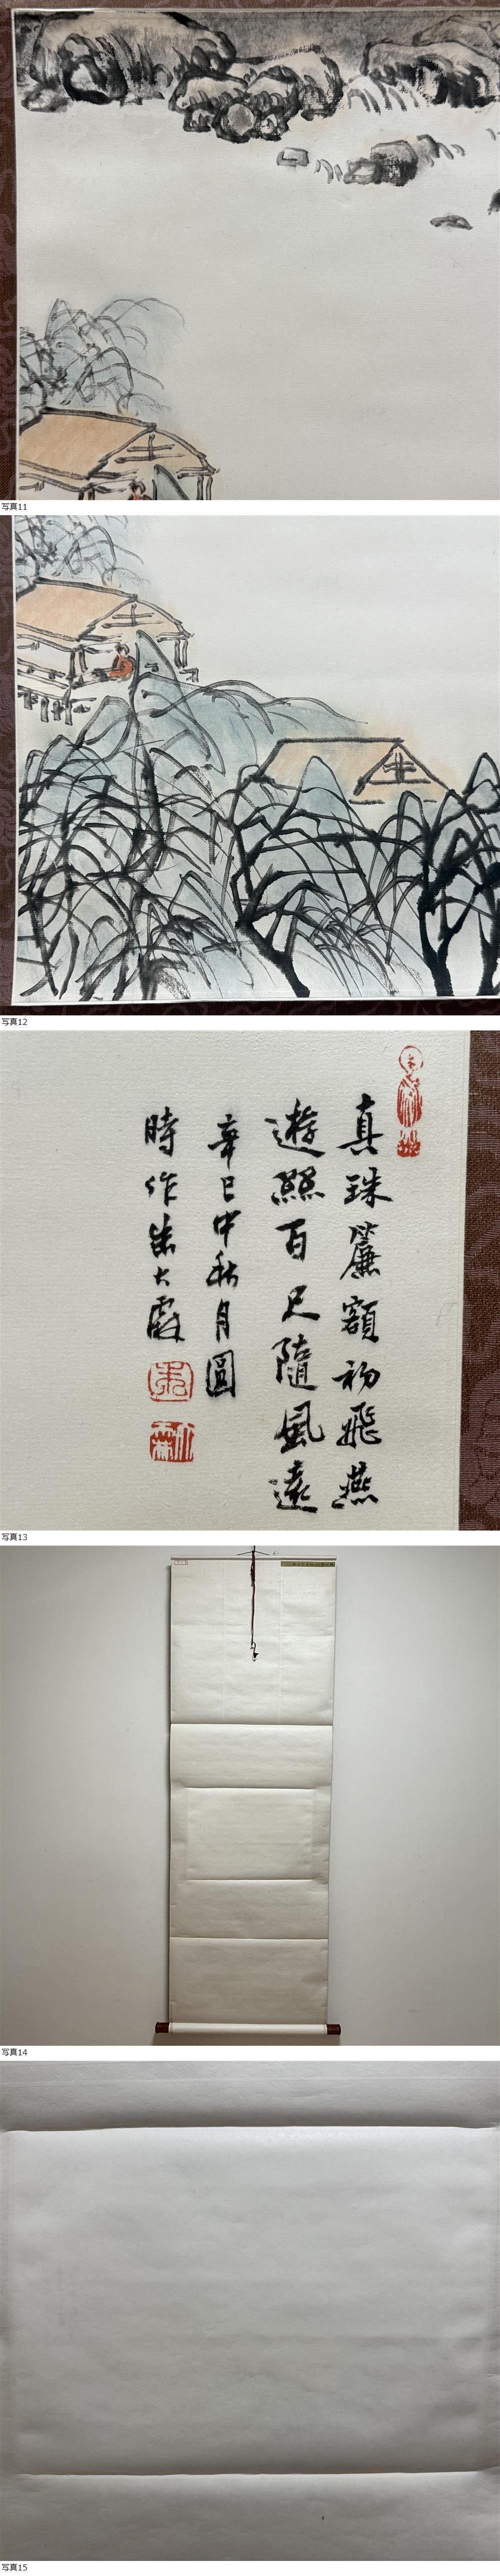 写真11
写真12
真珠簾額初飛燕
遊熙百尺隨風遠
辛巳中秋月圓
時作朱大霞
写真13
写真14
写真15